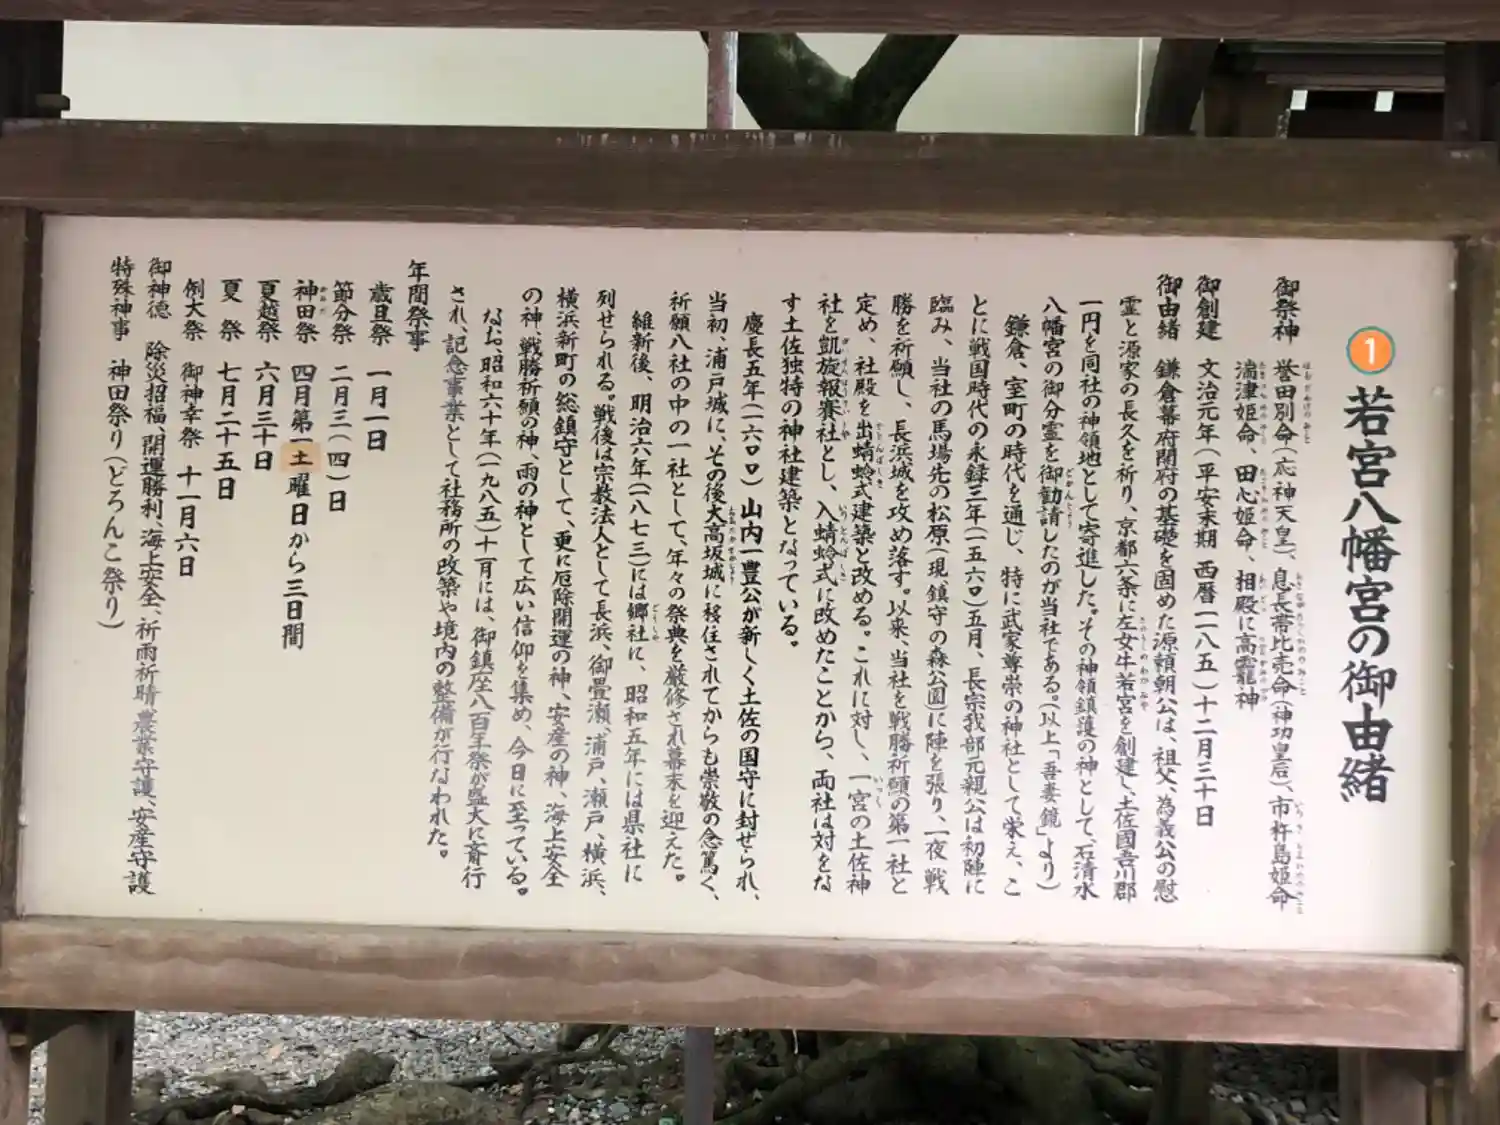 1 若宮八幡宮の御由緒
御祭神 誉田別命(応神天皇)、息長帯比売命(神功皇后)、市杵島姫命
湍津姫命、田心姫命、相殿に高龗神
御創建 文治元年(平安末期 西暦一一八五)十二月三十日
御由緒 鎌倉幕府開府の基礎を固めた源頼朝公は、祖父、為義公の慰
霊と源家の長久を祈り、京都六条に左女牛若宮を創建し、土佐國吾川郡
一円を同社の神領地として寄進した。その神領鎮護の神として、石清水
八幡宮の御分霊を御勧請したのが当社である。(以上「吾妻鏡」より)
鎌倉、室町の時代を通じ、特に武家尊崇の神社として栄え、こ
とに戦国時代の永録三年(一五六〇)五月、長宗我部元親公は初陣に
臨み、当社の馬場先の松原(現、鎮守の森公園)に陣を張り、一夜戦
勝を祈願し、長浜城を攻め落す。以来、当社を戦勝祈願の第一社と
定め、社殿を出蜻蛉式建築と改める。これに対し、一宮の土佐神
社を凱旋報賽社とし、入蜻蛉式に改めたことから、両社は対をな
す土佐独特の神社建築となっている。
慶長五年(一六〇〇)山内一豊公が新しく土佐の国守に封ぜられ、
当初、浦戸城に、その後大高坂城に移住されてからも崇敬の念篤く、
祈願八社の中の一社として、年々の祭典を厳修され幕末を迎えた。
維新後、明治六年(一八七三)には郷社に、昭和五年には県社に
列せられる。戦後は宗教法人として長浜、御畳瀬、浦戸、瀬戸、横浜、
横浜新町の総鎮守として、更に厄除開運の神、安産の神、海上安全
の神、戦勝祈願の神、雨の神として広い信仰を集め、今日に至っている。
なお、昭和六十年(一九八五)十一月には、御鎮座八百年祭が盛大に斎行
され、記念事業として社務所の改築や境内の整備が行なわれた。
年間祭事
歳旦祭 一月一日
節分祭 二月三(四)日
神田祭 四月第一土曜日から三日間
夏越祭 六月三十日
夏祭 七月二十五日
例大祭 御神幸祭 十一月六日
御神徳 除災招福、開運勝利、海上安全、祈雨祈晴、農業守護、安産守護
特殊神事 神田祭り(どろんこ祭り)